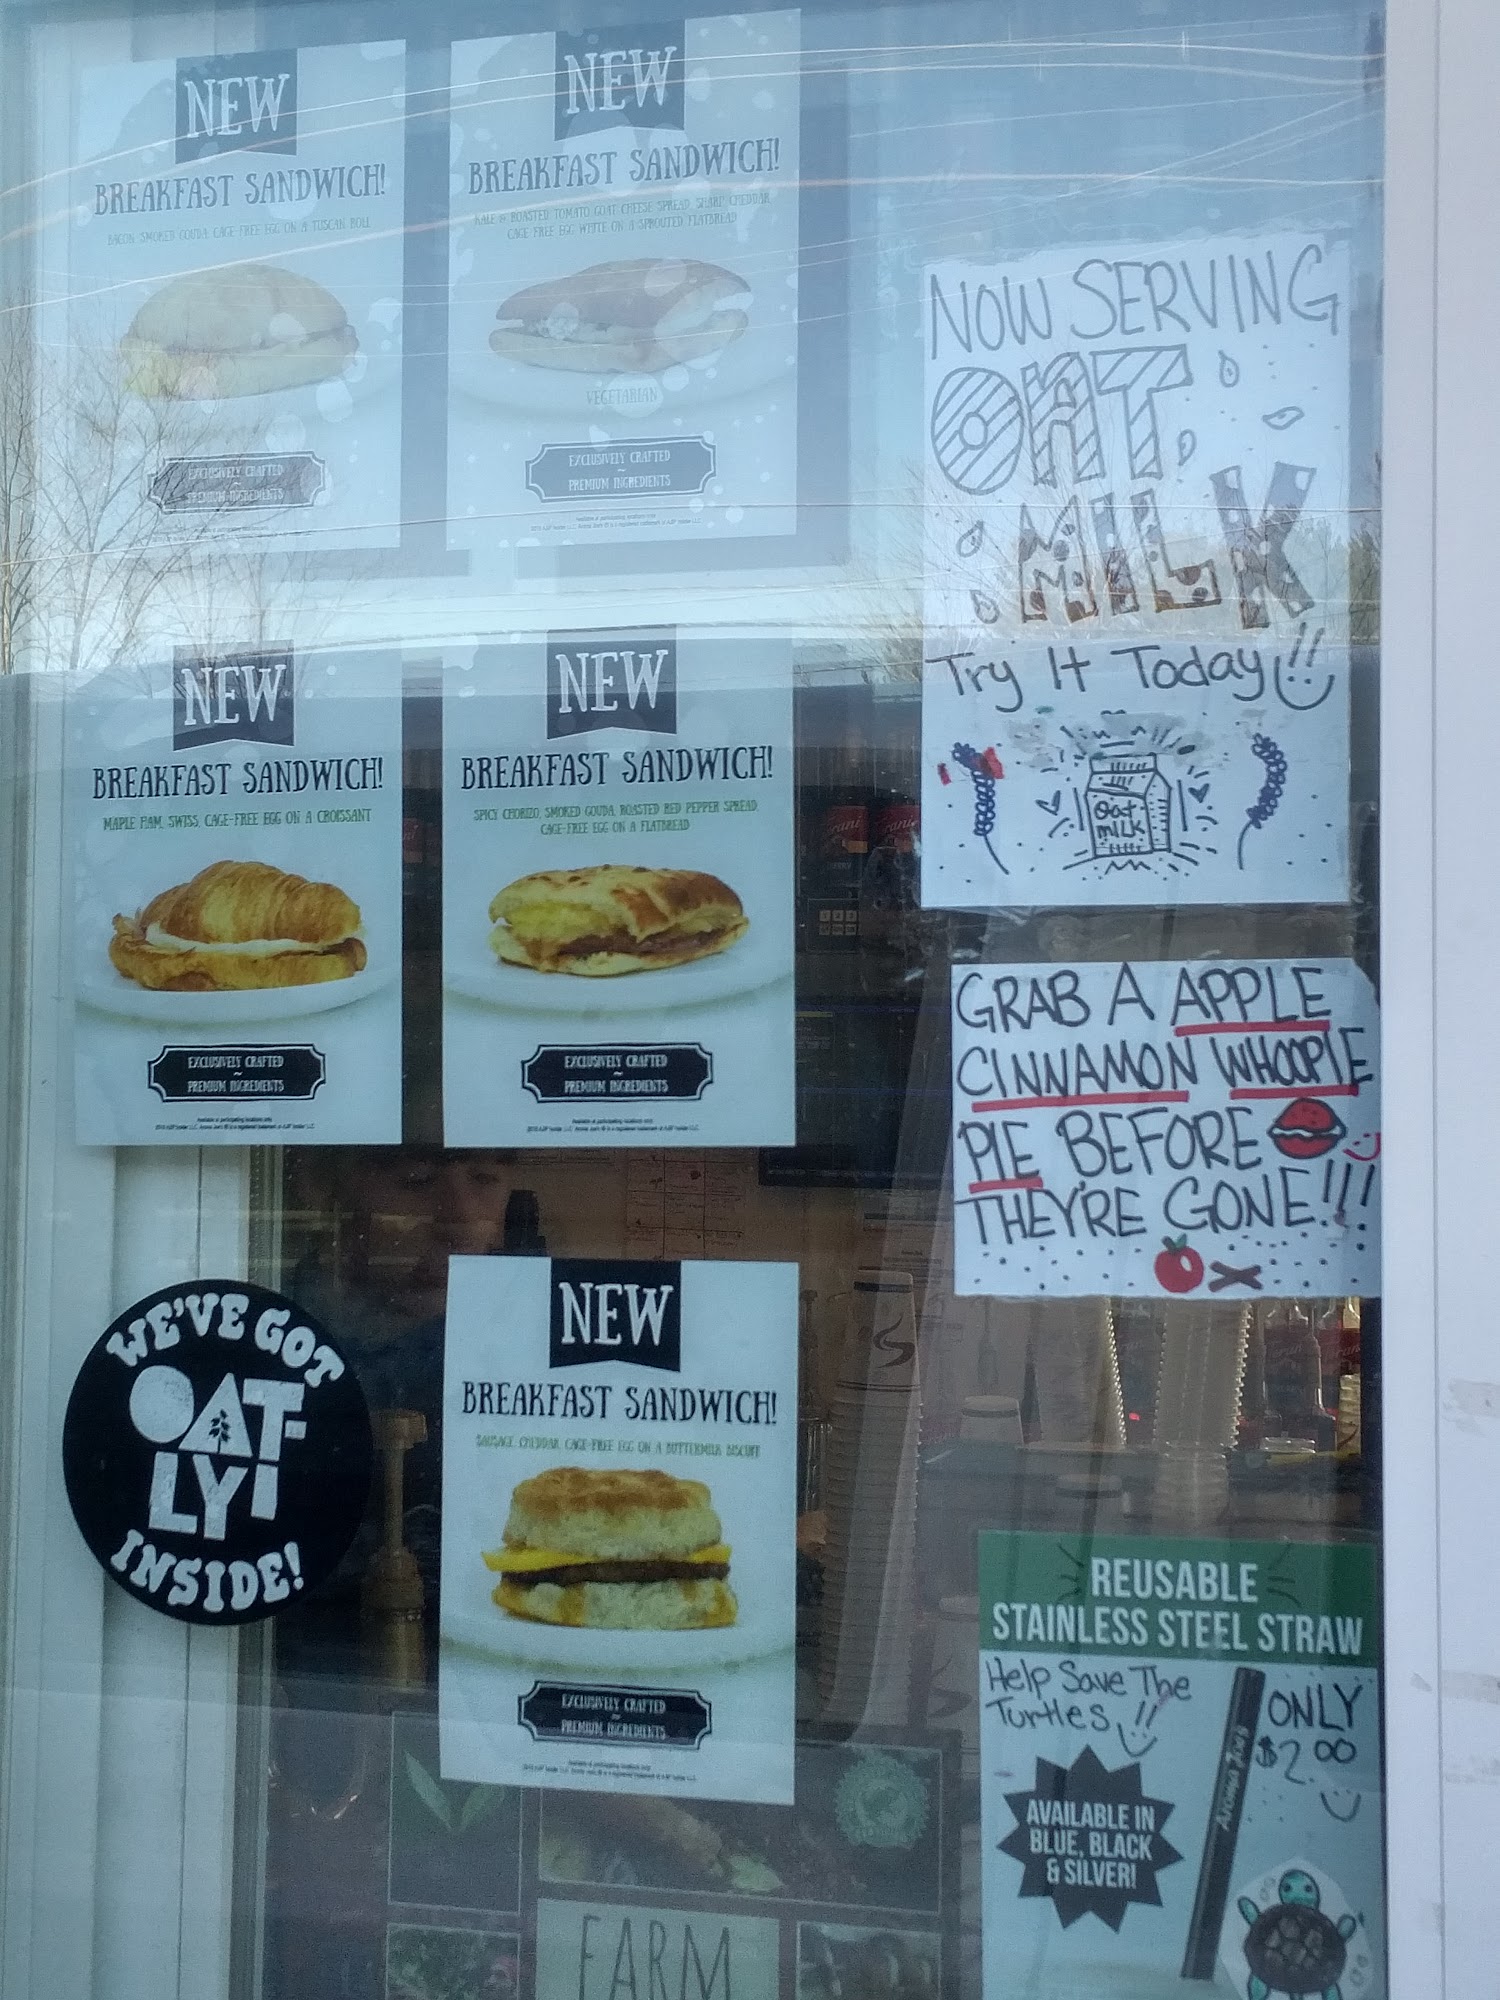 NEW
BREAKFAST SANDWICH!
BACON, SMOKED GOUDA, CAGE-FREE EGG ON A TUSCAN ROLL
EXCLUSIVELY CRAFTED
~
PREMIUM INGREDIENTS
NEW
BREAKFAST SANDWICH!
KALE & ROASTED TOMATO GOAT CHEESE SPREAD, SHARP CHEDDAR,
CAGE-FREE EGG WHITE ON A SPROUTED FLATBREAD
VEGETARIAN
EXCLUSIVELY CRAFTED
~
PREMIUM INGREDIENTS
Available at participating locations only
NOW SERVING
OAT
MILK
Try It Today!!
Oat
MILK
NEW
BREAKFAST SANDWICH!
MAPLE HAM, SWISS, CAGE-FREE EGG ON A CROISSANT
EXCLUSIVELY CRAFTED
~
PREMIUM INGREDIENTS
Available at participating locations only
NEW
BREAKFAST SANDWICH!
SPICY CHORIZO, SMOKED GOUDA, ROASTED RED PEPPER SPREAD,
CAGE-FREE EGG ON A FLATBREAD
EXCLUSIVELY CRAFTED
~
PREMIUM INGREDIENTS
Available at participating locations only
GRAB A APPLE
CINNAMON WHOOPIE
PIE BEFORE
THEY'RE GONE!!!
WE'VE GOT
OAT-
LY!
INSIDE!
NEW
BREAKFAST SANDWICH!
SAUSAGE, CHEDDAR, CAGE-FREE EGG ON A BUTTERMILK BISCUIT
EXCLUSIVELY CRAFTED
~
PREMIUM INGREDIENTS
Available at participating locations only
REUSABLE
STAINLESS STEEL STRAW
Help Save The
Turtles!!
ONLY
$2.00
Aroma Joe's
AVAILABLE IN
BLUE, BLACK
& SILVER!
FARM